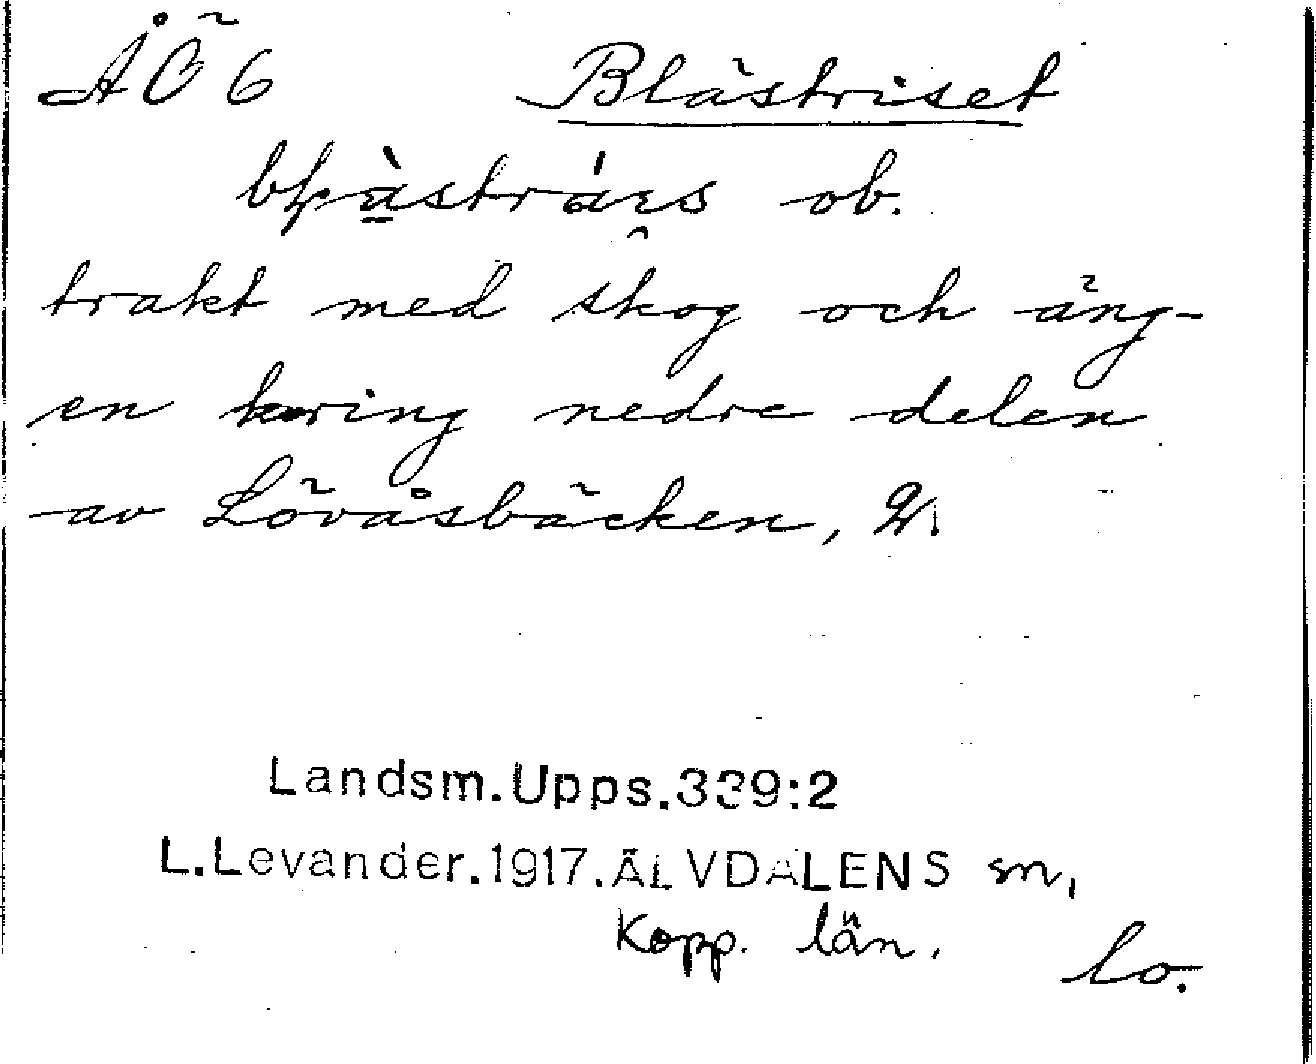 ÅÖ 6 Blästriset
trakt med skog och äng-
en kring nedre delen
av Lövåsbäcken, V.
Landsm.Upps.339:2
L.Levander.1917.ÄLVDALENS sn,
Kopp. län. lo.